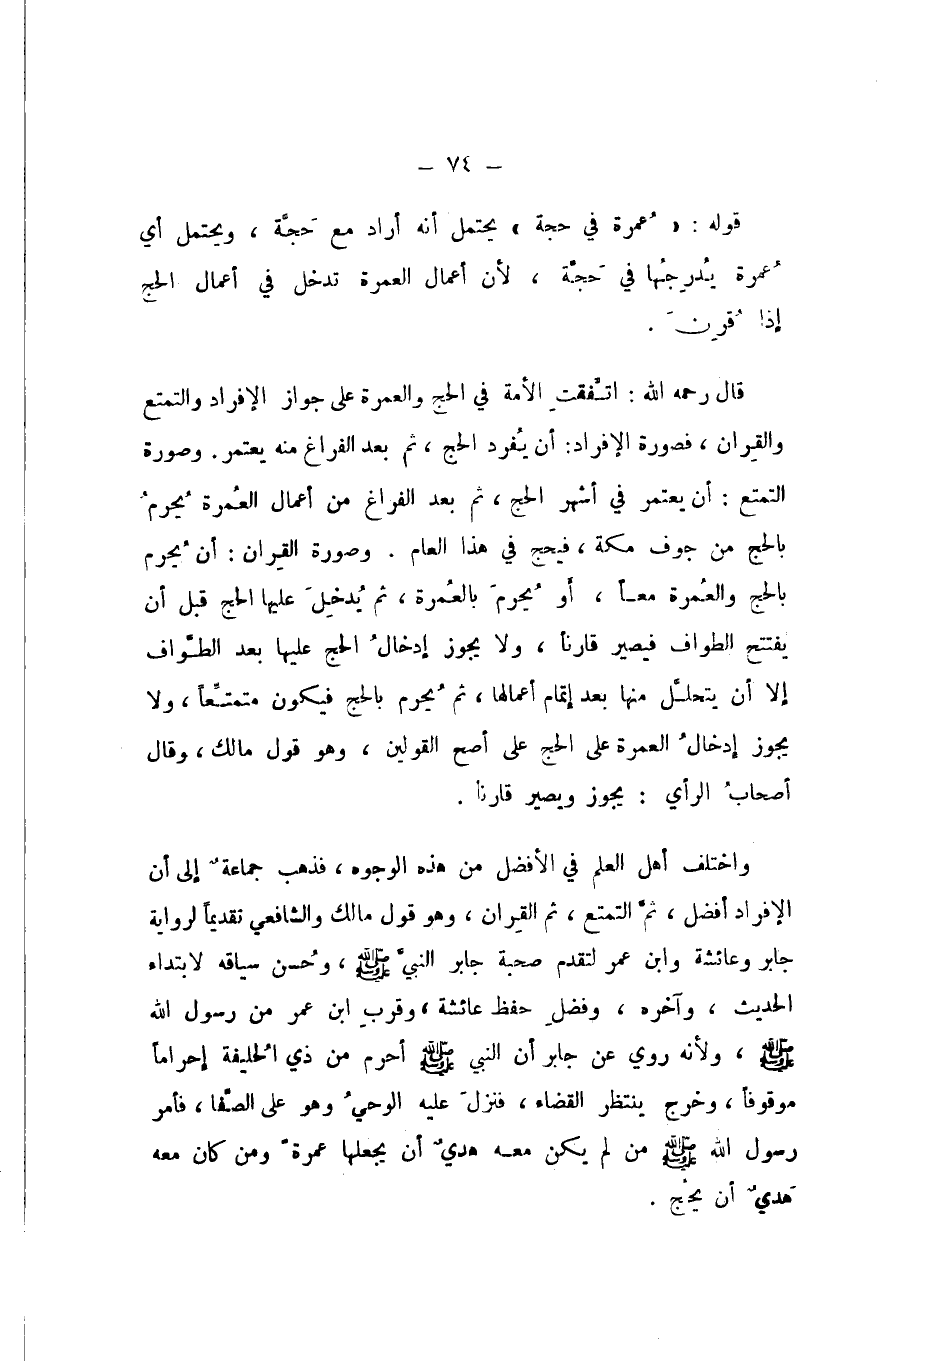 – ٧٤ –
قوله : « عُمرة في حجة » يحتمل أنه أراد مع حَجَّة ، ويحتمل أي
عُمرة يُدرِجُها في حَجَّة ، لأن أعمال العمرة تدخل في أعمال الحج
إذا قُرِنَ .
قال رحمه الله : اتَّفقتِ الأمة في الحج والعمرة على جواز الإفراد والتمتع
والقِران ، فصورة الإفراد: أن يُفرد الحج ، ثم بعد الفراغ منه يعتمر . وصورة
التمتع : أن يعتمر في أشهر الحج ، ثم بعد الفراغ من أعمال العُمرة يُحرمُ
بالحج من جوف مكة ، فيحج في هذا العام . وصورة القِران : أن يُحرم
بالحج والعُمرة معاً ، أو يُحرمَ بالعُمرة ، ثم يُدخِلَ عليها الحج قبل أن
يفتتح الطواف فيصير قارناً ، ولا يجوز إدخالُ الحج عليها بعد الطَّواف
إلا أن يتحلَّل منها بعد إتمام أعمالها ، ثم يُحرم بالحج فيكون متمتِّعاً ، ولا
يجوز إدخالُ العمرة على الحج على أصح القولين ، وهو قول مالك ، وقال
أصحابُ الرأي : يجوز ويصير قارناً .
واختلف أهل العلم في الأفضل من هذه الوجوه ، فذهب جماعةٌ إلى أن
الإفراد أفضل ، ثمَّ التمتع ، ثم القِران ، وهو قول مالك والشافعي تقديماً لرواية
جابر وعائشة وابن عمر لتقدم صحبة جابر النبيَّ ﷺ ، وحُسن سياقه لابتداء
الحديث ، وآخره ، وفضلِ حفظ عائشة ، وقربِ ابن عمر من رسول الله
ﷺ ، ولأنه روي عن جابر أن النبي ﷺ أحرم من ذي الحُليفة إحراماً
موقوفاً ، وخرج ينتظر القضاء ، فنزلَ عليه الوحيُ وهو على الصَّفا ، فأمر
رسول الله ﷺ من لم يكن معه هديٌ أن يجعلها عمرةً ومن كان معه
هَديٌ أن يحُج .